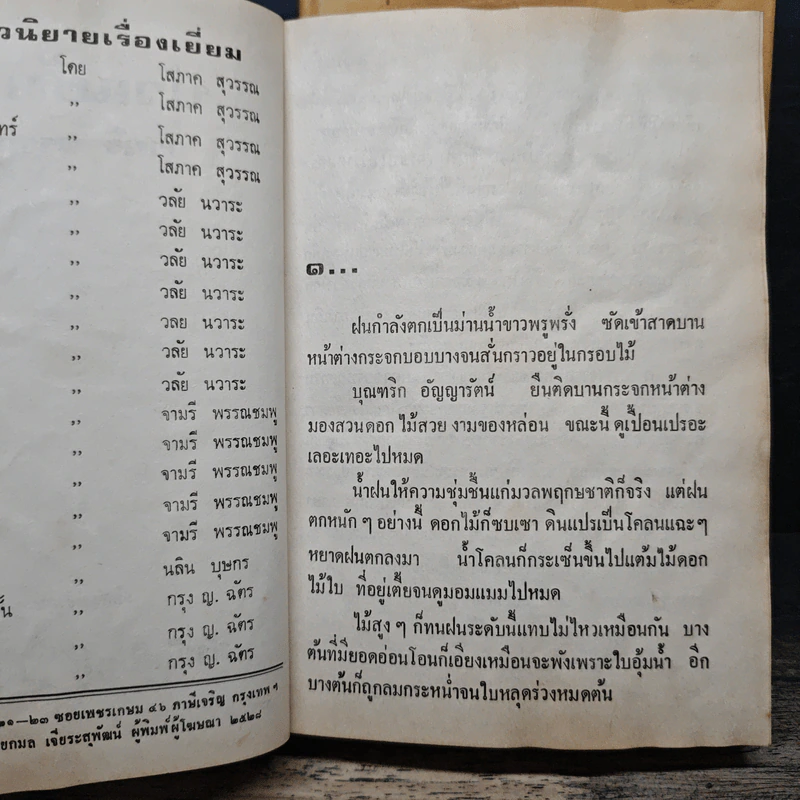 วนิยายเรื่องเยี่ยม
โดย โสภาค สุวรรณ
,, โสภาค สุวรรณ
ทร์ ,, โสภาค สุวรรณ
,, โสภาค สุวรรณ
,, วลัย นวาระ
,, วลัย นวาระ
,, วลัย นวาระ
,, วลัย นวาระ
,, วลย นวาระ
,, วลัย นวาระ
,, วลัย นวาระ
,, จามรี พรรณชมพู
,, จามรี พรรณชมพู
,, จามรี พรรณชมพู
,, จามรี พรรณชมพู
,, จามรี พรรณชมพู
,, นลิน บุษกร
,, กรุง ญ. ฉัตร
,, กรุง ญ. ฉัตร
,, กรุง ญ. ฉัตร
๒๑—๒๓ ซอยเพชรเกษม ๔๖ ภาษีเจริญ กรุงเทพ ฯ
ยกมล เจียระสุพัฒน์ ผู้พิมพ์ผู้โฆษณา ๒๕๒๘
๑...
ฝนกำลังตกเป็นม่านน้ำขาวพรูพรั่ง ซัดเข้าสาดบาน
หน้าต่างกระจกบอบบางจนสั่นกราวอยู่ในกรอบไม้
บุณฑริก อัญญารัตน์ ยืนติดบานกระจกหน้าต่าง
มองสวนดอก ไม้สวย งามของหล่อน ขณะนี้ ดูเปื้อนเปรอะ
เลอะเทอะไปหมด
น้ำฝนให้ความชุ่มชื้นแก่มวลพฤกษชาติก็จริง แต่ฝน
ตกหนัก ๆ อย่างนี้ ดอกไม้ก็ซบเซา ดินแปรเป็นโคลนแฉะ ๆ
หยาดฝนตกลงมา น้ำโคลนก็กระเซ็นขึ้นไปแต้มไม้ดอก
ไม้ใบ ที่อยู่เตี้ยจนดูมอมแมมไปหมด
ไม้สูง ๆ ก็ทนฝนระดับนี้แทบไม่ไหวเหมือนกัน บาง
ต้นที่มียอดอ่อนโอนก็เอียงเหมือนจะพังเพราะใบอุ้มน้ำ อีก
บางต้นก็ถูกลมกระหน่ำจนใบหลุดร่วงหมดต้น